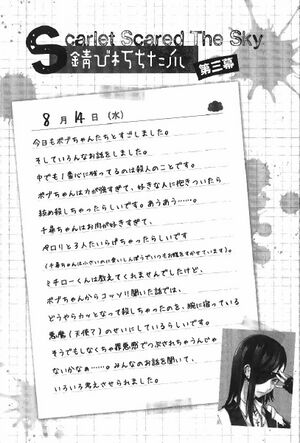 Scarlet Scared The Sky
錆び朽ちた爪
第三幕
8月14日(水)
今日もボブちゃんたちとすごしました。
そしていろんなお話をしました。
中でも1番心に残ってるのは殺人のことです。
ボブちゃんは力が強すぎて、好きな人に抱きついたら
絞め殺しちゃったらしいです。あうあう……。
千尋ちゃんはお肉が好きすぎて、
ペロリと3人たいらげちゃったらしいです
(千尋ちゃんは小さいのに食いしんぼうでいつもお腹をすかせています)。
ミチローくんは教えてくれませんでしたけど、
ボブちゃんからコッソリ聞いた話では、
どうやらカッとなって殺しちゃったのを、腕に宿っている
悪魔(天使?)のせいにしているらしいです。
そうでもしなくちゃ罪悪感でつぶされちゃうんじゃ
ないかなぁ…。みんなのお話を聞いて、
いろいろ考えさせられました。